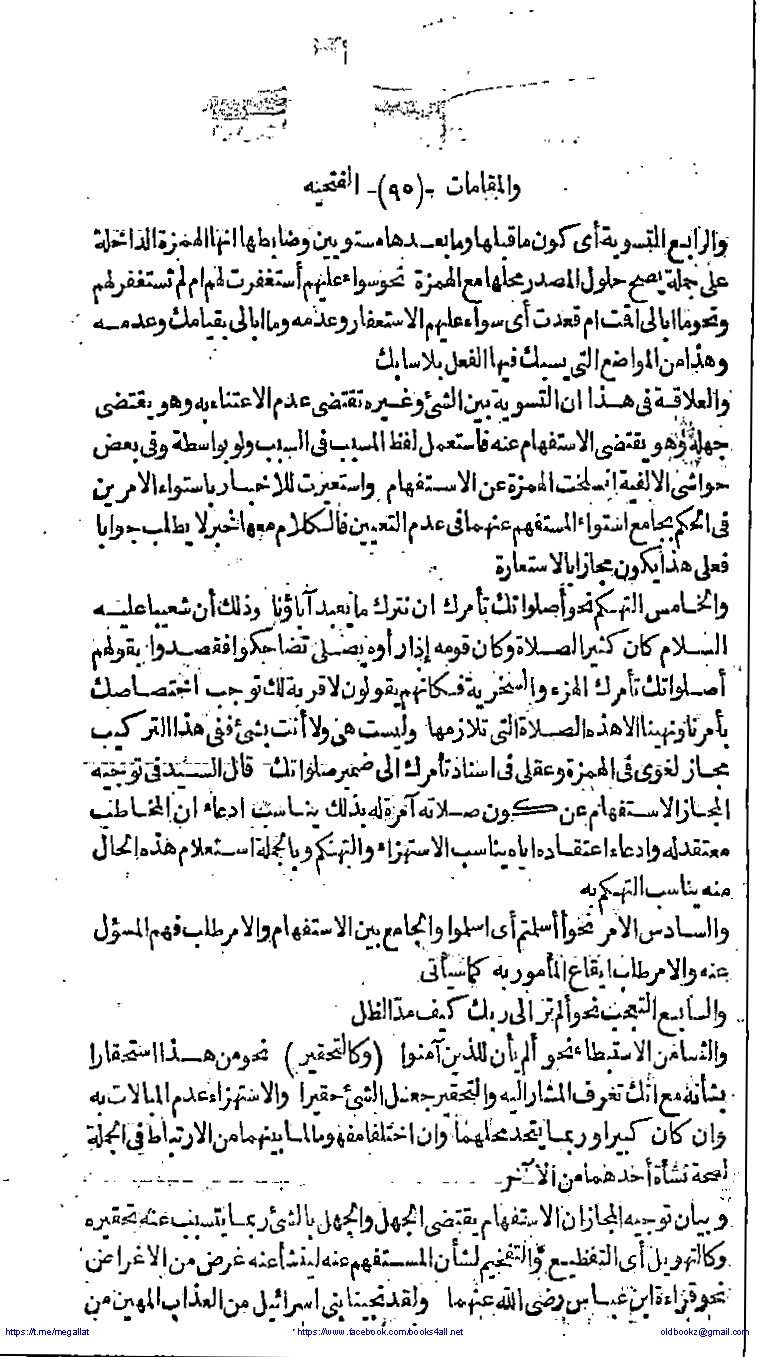 والمقامات -(٩٥)- الفتحيه
والرابع التسوية أى كون ما قبلها وما بعدها مستويين وضابطها انها الهمزة الداخلة
على جملة يصح حلول المصدر محلها مع الهمزة نحو سواء عليهم أستغفرت لهم ام لم تستغفر لهم
ونحو ما ابالى اقت ام قعدت أى سواء عليهم الاستغفار وعدمه وما ابالى بقيامك وعدمه
وهذا من المواضع التي يسبك فيها الفعل بلا سابك
والعلاقة فى هذا ان التسوية بين الشئ وغيره تقتضى عدم الاعتناء به وهو يقتضى
جهله وهو يقتضى الاستفهام عنه فاستعمل لفظ المسبب فى السبب ولو بواسطة وفى بعض
حواشى الالفية انسلخت الهمزة عن الاستفهام واستعيرت للاخبار باستواء الامرين
فى الحكم بجامع استواء المستفهم عنهما فى عدم التعيين فالكلام معها خبر لا يطلب جوابا
فعلى هذا يكون مجازا بالاستعارة
والخامس التهكم نحو أصلواتك تأمرك ان نترك ما يعبد آباؤنا وذلك أن شعيبا عليه
السلام كان كثير الصلاة وكان قومه إذا رأوه يصلى تضاحكوا فقصدوا بقولهم
أصلواتك تأمرك الهزء والسخرية فكانهم يقولون لا قربة لك توجب اختصاصك
بأمرنا ونهينا الا هذه الصلاة التى تلازمها وليست هى ولا أنت بشئ ففى هذا التركيب
مجاز لغوى فى الهمزة وعقلى فى اسناد تأمرك الى ضمير صلواتك قال السيد فى توجيه
المجاز الاستفهام عن كون صلاته آمرة له بذلك يناسب ادعاء ان المخاطب
معتقد له وادعاء اعتقاده اياه يناسب الاستهزاء والتهكم وبالجملة استعلام هذه الحال
منه يناسب التهكم به
والسادس الامر نحو أأسلمتم أى اسلموا والجامع بين الاستفهام والامر طلب فهم المسؤل
عنه والامر طلب ايقاع المأمور به كما سيأتى
والسابع التعجب نحو ألم تر الى ربك كيف مد الظل
والثامن الاستبطاء نحو ألم يأن للذين آمنوا (وكالتحقير) نحو من هذا استحقارا
بشأنه مع انك تعرف المشار اليه والتحقير جعل الشئ حقيرا والاستهزاء عدم المبالات به
وان كان كبيرا وربما يتحد محلهما وان اختلفا مفهوما لما بينهما من الارتباط فى الجملة
لصحة نشأة أحدهما من الآخر
وبيان توجيه المجاز ان الاستفهام يقتضى الجهل والجهل بالشئ ربما يتسبب عنه تحقيره
وكالتهويل أى التفظيع والتفخيم لشأن المستفهم عنه لينشأ عنه غرض من الاغراض
نحو قراءة ابن عباس رضى الله عنهما ولقد نجينا بنى اسرائيل من العذاب المهين من
https://t.me/megallat https://www.facebook.com/books4all.net oldbookz@gmail.com